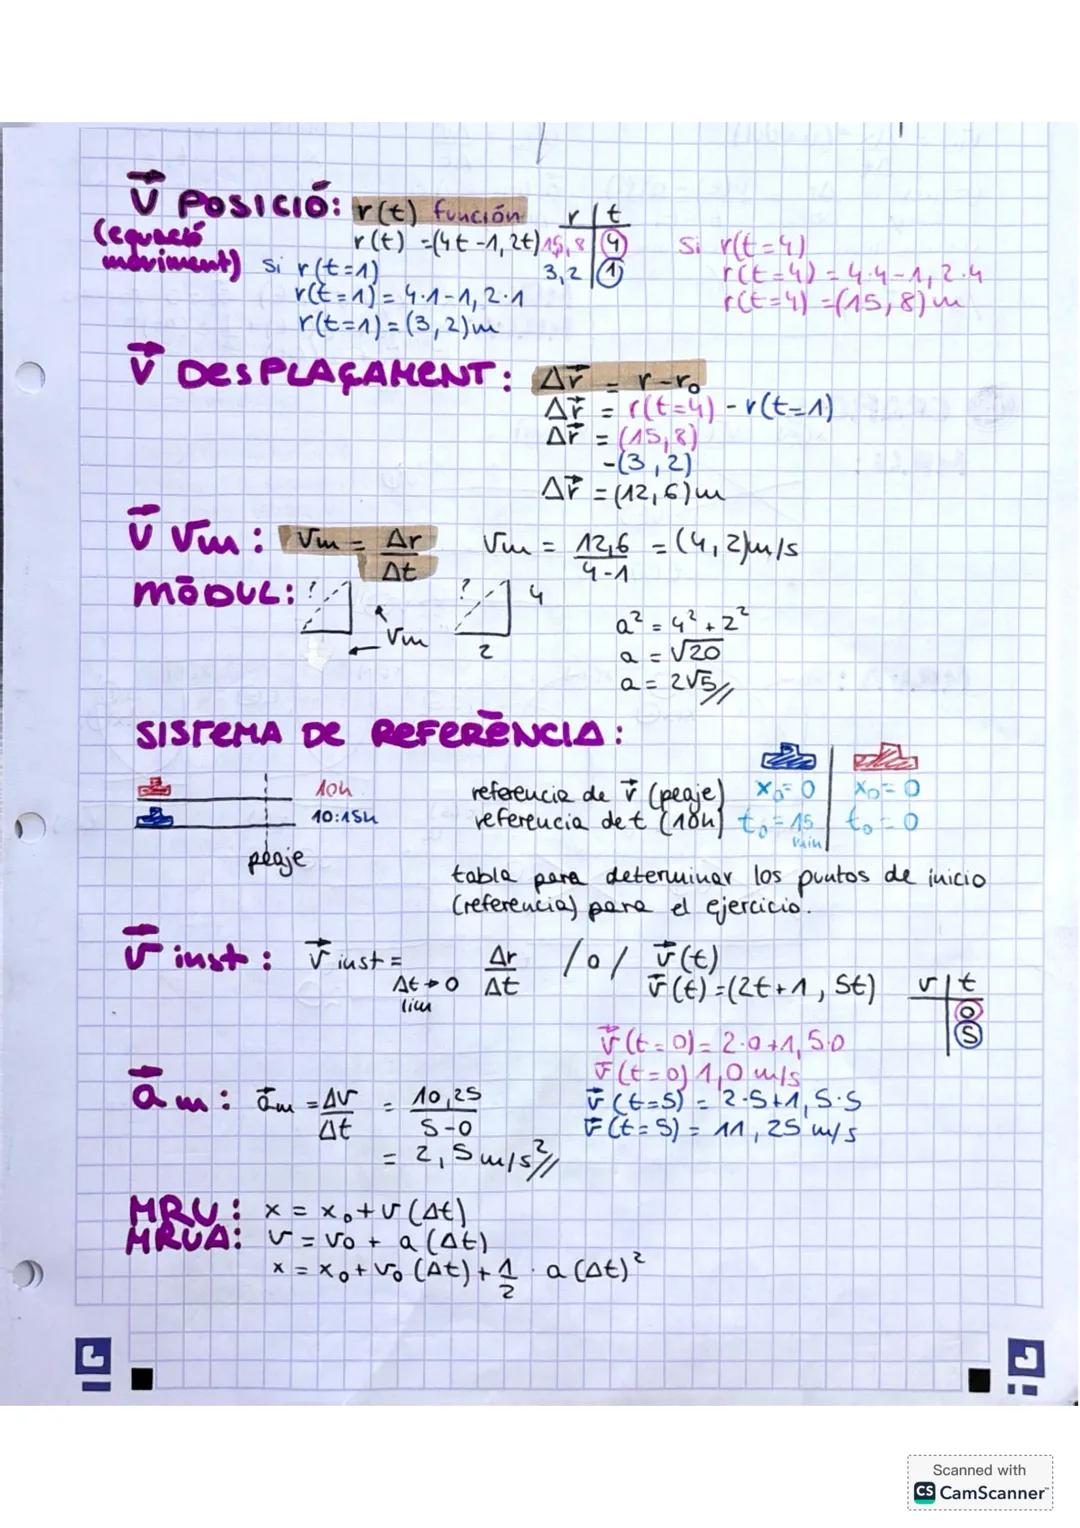 V POSICIÓ: r(t) función r | t
(equació moviment) r(t) =(4t-1, 2t) 15,8 | 4 Si r(t=4)
Si r(t=1) 3,2 | 1 r(t=4) = 4·4-1, 2·4
r(t=1) = 4·1-1, 2·1 r(t=4) =(15,8)m
r(t=1) = (3,2)m
V DESPLAÇAMENT: Δr = r-r₀
Δr = r(t=4) - r(t=1)
Δr = (15,8)
-(3,2)
Δr = (12,6)m
V Vm: Vm = Δr/Δt Vm = 12,6/4-1 = (4,2)m/s
MÒDUL: ? Vm ? 4 2
a² = 4² + 2²
a = √20
a = 2√5//
SISTEMA DE REFERÈNCIA:
10h referencia de v (peaje) x₀=0 | x₀=0
10:15h referencia de t (10h) t₀=15 min | t₀=0
peaje
tabla para determinar los puntos de inicio
(referencia) para el ejercicio.
v inst: v inst = lim Δt→0 Δr/Δt /o/ v(t)
v(t)=(2t+1, 5t) v | t
0
5
v(t=0)= 2·0+1, 5·0
v(t=0) 1,0 m/s
a m: am = Δv/Δt = 10,25/5-0 v(t=5) = 2·5+1, 5·5
v(t=5) = 11,25 m/s
= 2,5 m/s²//
MRU: x = x₀+v(Δt)
MRUA: v = v₀ + a(Δt)
x = x₀+v₀(Δt)+1/2 · a(Δt)²
Scanned with
CS CamScanner